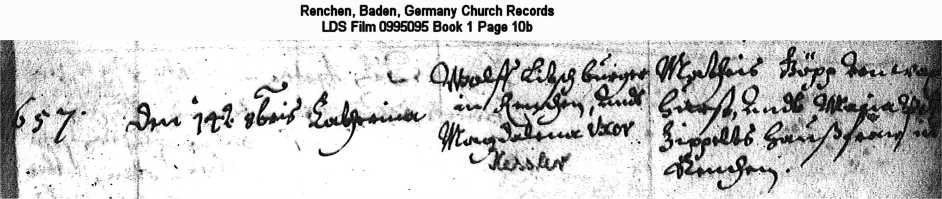 Renchen, Baden, Germany Church Records
LDS Film 0995095 Book 1 Page 10b
657. Den 14t. 8bris Catherina
Wolff Litsch burger
in Renchen, unds
Magdalena Uxor
Kessler
Matheis
unds Maria
Zippelts Haußfraw in
Renchen.